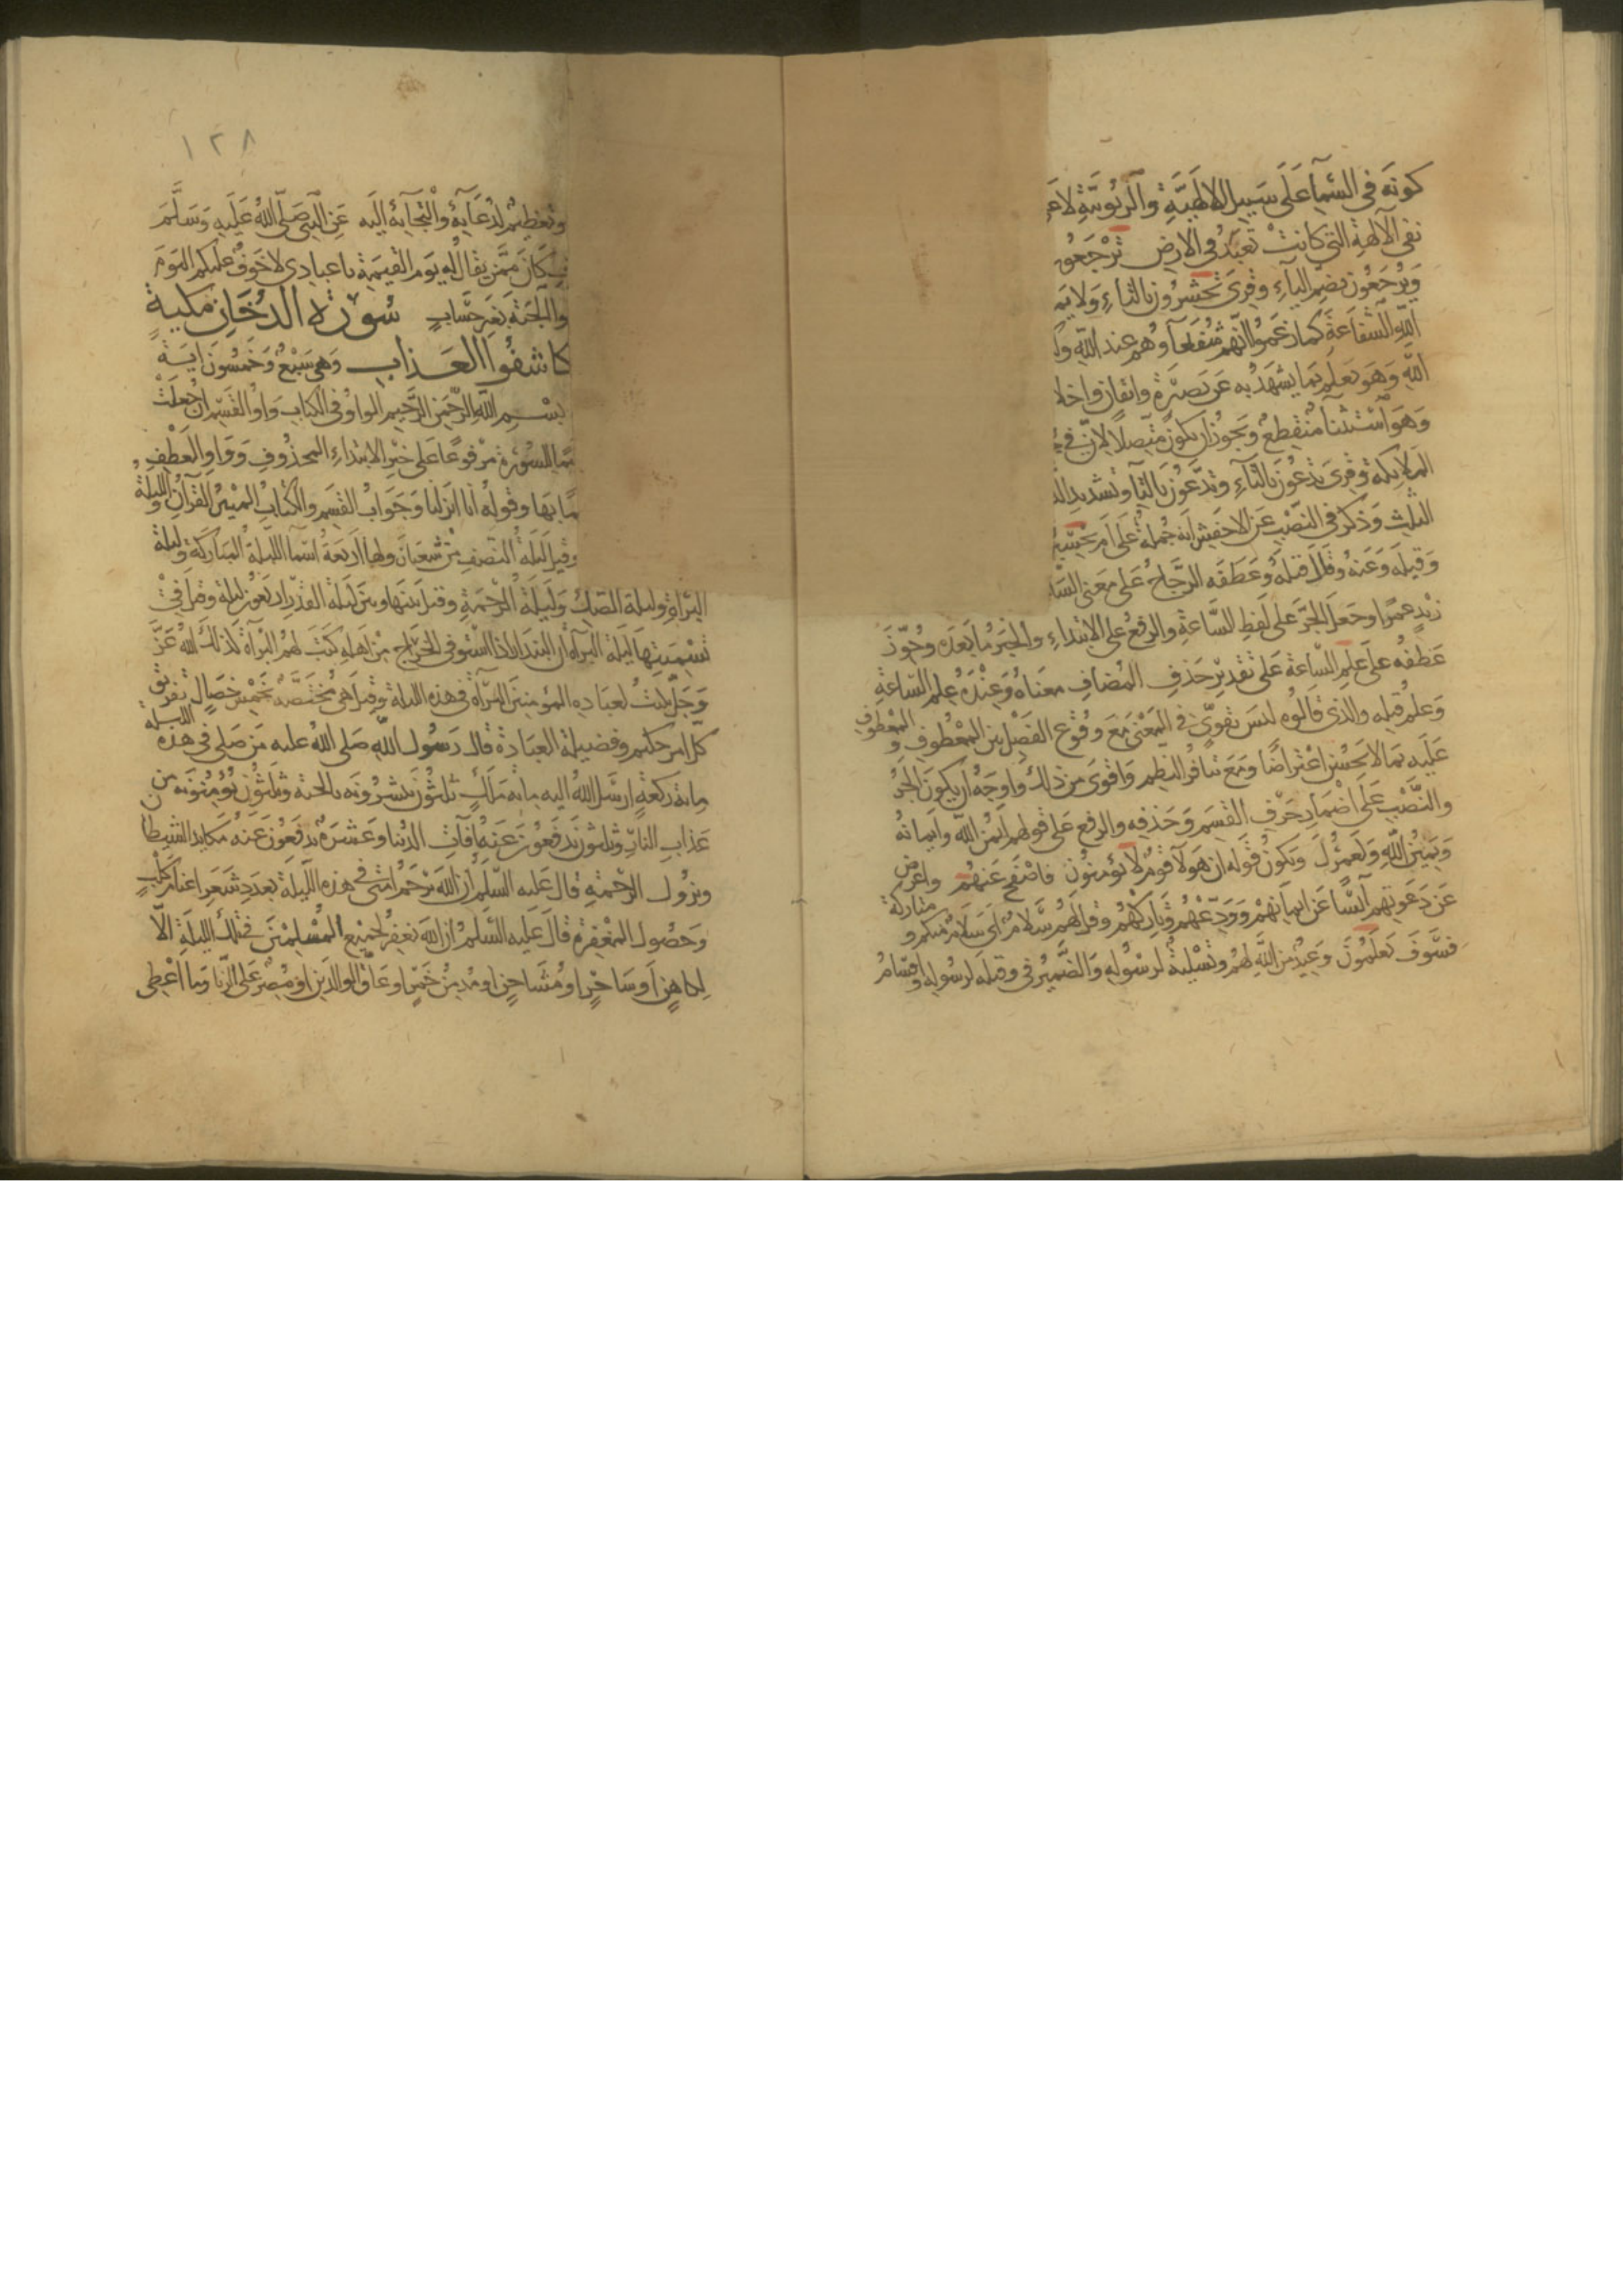 كونه في السَّمآ عَلَى سَبيل الالَهيَّةِ وَالرُّبُوبيَّةِ لا عَ
نفى الآلهةِ التى كانتْ تعبَدُ فى الارض تُرْجَعُو
وَيُرْجَعُون بضمّ اليآءِ وقرىَ تحشرُون بالتاءِ وَلا يم
اللّهِ الشفاعَة كما زعَموُا انّهم شُفَعآ وهُم عند اللّهِ وَل
اللّه وَهوَ يَعلم بما يشهَدُ به عَن بَصيرَةٍ وايقانٍ واخلا
وَهوَ اسْتثنآ مُنْقطعٌ وَيجوزُ ان يكوُنَ مُتّصِلًا لاِنّ في
الملايكة وقرىَ تَدعُوُنَ بالتآءِ وتدَّعوُنَ بالتآ وتشديد ال
الثلث وَذكرَ فى النَّصْبِ عَن الاخفشِ انه حُملَ عَلَى اَم يَحْسِبُ
وَقيلَه وَعَنهُ وقالَ قيلَهُ وَعَطفَه الزَّجاجُ عَلَى معنى السَّا
زيدٍ عَمْرًا وجعَلَ الجَرّ عَلى لفظ السَّاعَةِ والرفعُ على الابتداءِ والخبرُ ما بَعدَه وجُوّزَ
عَطفُه عَلى عِلم السَّاعة عَلى تقديرِ حَذفِ المُضافِ معناهُ وَعِنْدَهُ علم السَّاعَةِ
وَعلمُ قيله والذى قالوُه ليسَ بقوىٍّ في المعْنى مَعَ وُقوُع الفَصْل بين المعْطوُفِ و المعْطوُفِ
عَليه بما لا يَحسُن اعْتراضًا ومَعَ تنافُر النظم وَاقوىَ من ذلك وَاوجَهُ ان يكوُنَ الجَرُّ
والنَّصْبُ عَلى اضمار حَرفِ القسَم وَحَذفِه والرفع عَلى قولهم ايْمُنُ اللّه وايمانهُ
وَيمينُ اللّهِ وَلَعَمرُكَ وَيكوُنُ قولهُ ان هَولآ قوْمٌ لا يُؤمنوُن فاصْفح عَنهُم واعرض
عَن دَعَوتِهم آئِسًا عَن ايمانهمْ وَوَدّعْهُم وتارِكْهُم وقل لَهُم سَلامٌ اى سَلامٌ منكم و متاركة
فسَوفَ تَعلمُونَ وَعيدٌ من اللّهِ لهُم وتسْليةٌ لرسُوله وَالضَّميرُ فى وقيله لرسُوله واقسَامُ
١٢٨
وتعظيمٌ لِدُعَآيهِ وَالتجآيه اليَه عَن النبىِّ صَلّى اللّهُ عَلَيهِ وَسَلَّمَ
كانَ ممَّن يقالُ له يَوم القيمَة يا عبادى لا خَوفٌ عليكم اليَوْمَ
والجَنة بغير حسَابٍ سُورَة الدُّخَانِ مكيةٌ
كاشفُوا العَذابِ وَهى سَبْعٌ وَخمسُونَ ايَةً
بسْم اللّهِ الرّحْمن الرَّحيم الواوُ فى الكتابِ وَاوُ القسَم ان جُعلتْ
للسُورَة مرْفوُعًا عَلى خبر الابتداءِ المحذُوفِ وَوَاو العَطْفِ
بها وقولهُ انا انزلنا وَجَوابُ القسَم والكتابُ المُبينُ القرآنُ والليلة
وقيلَ ليلَة النّصفِ مِنْ شعبَان ولها اَربَعَة اسمآ الليلة المبَاركة وليلَة
البَرَاةِ وليلة الصّكِ وَليلَة الرَّحمَةِ وقيل بَينهَا وبيَن ليلة القدْر اربعُون ليلة وقيلَ فى
تسْمِيَتِهَا ليلَة البَرآةِ ان البندارَ اذا اسْتوفى الخَرَاج مِن اهله كتبَ لهُم البَرآة كذلكَ اللّهُ عَزَّ
وَجَلّ يكتبُ لعبَاده المؤمنينَ البَرآة فى هذه الليلة وقيلَ هى مُختَصَّة بخمْس خصَالٍ تفريق
كل امرٍ حكيم وفضيلَة العبَادَة قال رَسُول اللّهِ صَلى اللّهُ عليه مَن صَلى فى هذه الليلة
ماية رَكعَةٍ ارسَل اللّهُ اليه ماية مَلكٍ ثلثوُن يُبشرُونَه بالجنة وثلثوُن يُؤمِنوُنَه من
عَذابِ النارِ وثلثون يَدفعُونَ عَنهُ آفاتِ الدُنيا وَعَشرَةٌ يدفعُونَ عَنهُ مَكايدَ الشيطان
ونزُول الرّحْمةِ قالَ عَليه السّلمُ ان اللّهَ يَرحَمُ امّتى فى هذه اللَّيلة بعَدَدِ شعَرِ اغنام كلْبٍ
وَحصُول المغْفِرَة قالَ عَليه السَّلمُ ان اللّهَ يَغفرُ لجميْع المُسْلِميْنَ فى تلك الليلة الّا
لِكاهِنٍ اَو سَاحرٍ او مُشَاحِنٍ او مُدمِنِ خَمْرٍ او عَاقّ الوالدَين او مُصِرّ عَلى الزنا وَما اعْطِى